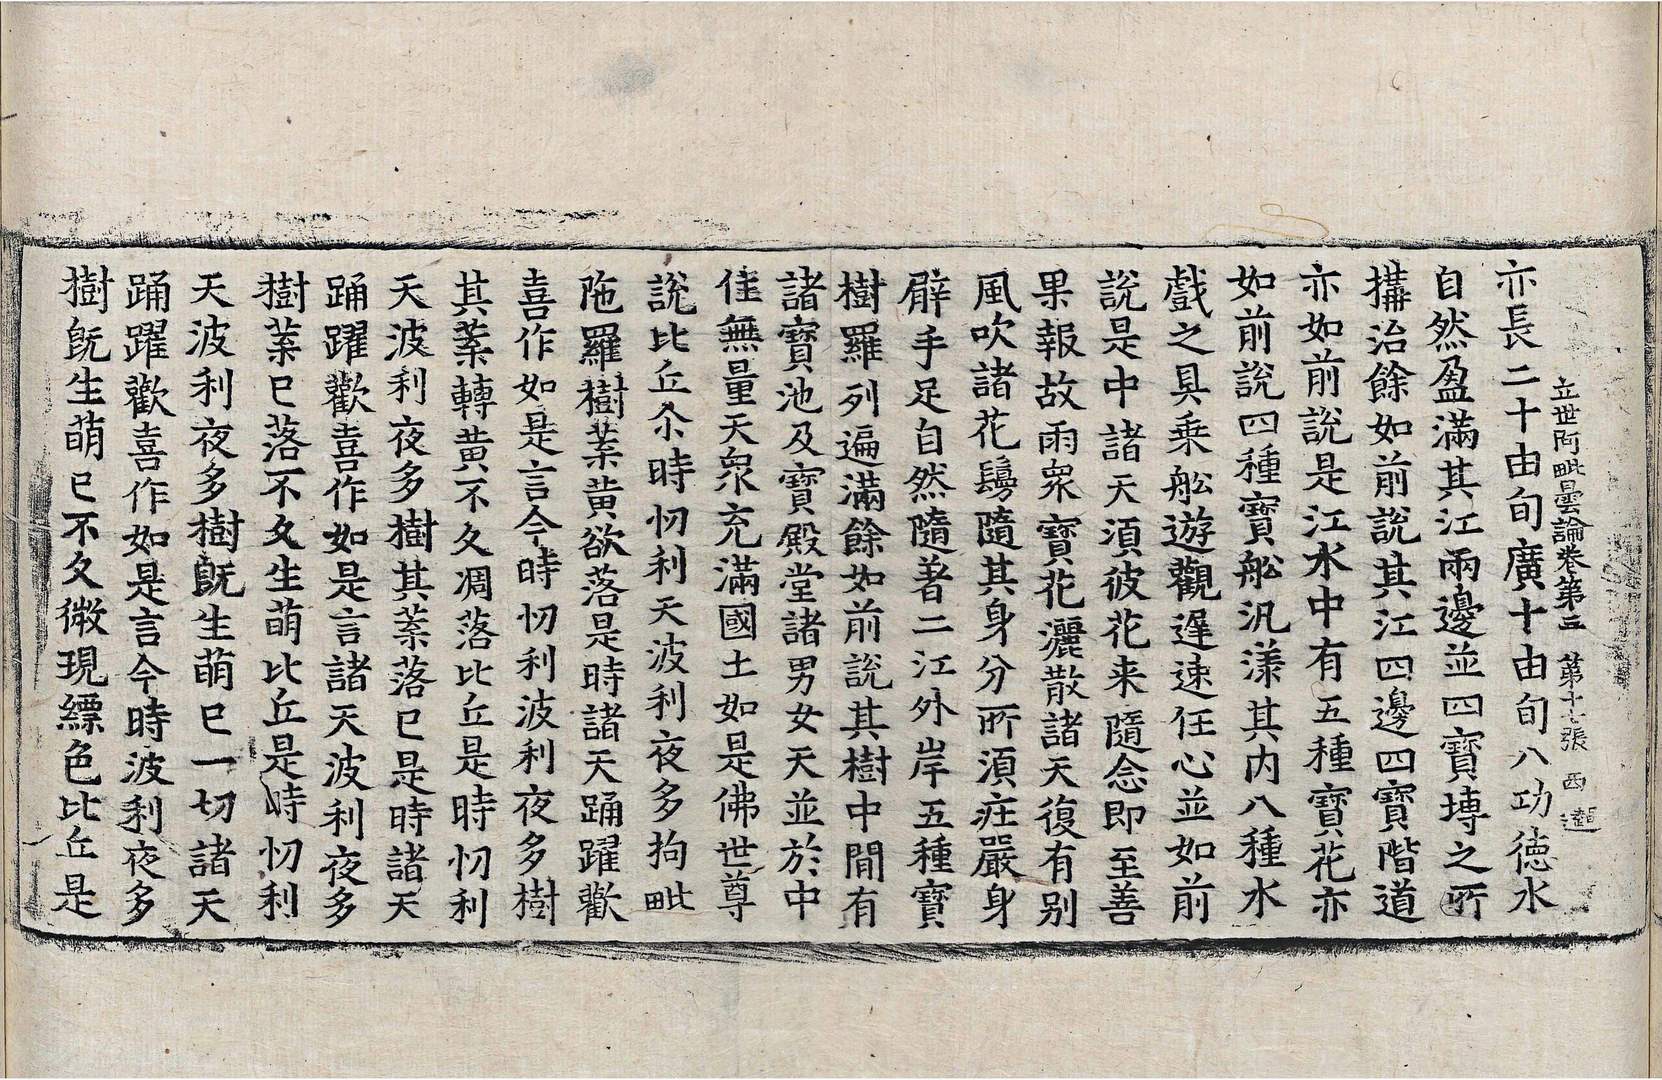 亦長二十由旬廣十由旬八功德水
立世阿毗曇論卷第三 第十七張 西
自然盈滿其江兩邊並四寶塼之所
搆治餘如前說其江四邊四寶階道
亦如前說是江水中有五種寶花亦
如前說四種寶舩汎漾其内八種水
戲之具乗舩遊觀遲速任心並如前
說是中諸天湏彼花来隨念即至善
果報故雨衆寶花灑散諸天復有别
風吹諸花鬘隨其身分所湏疘嚴身
臂手足自然隨著二江外岸五種寶
樹羅列遍滿餘如前說其樹中間有
諸寶池及寶殿堂諸男女天並於中
住無量天衆充滿國土如是佛世尊
說比丘尒時忉利天波利夜多拘毗
陁羅樹葉黄欲落是時諸天踊躍歡
喜作如是言今時忉利波利夜多樹
其葉轉黄不久凋落比丘是時忉利
天波利夜多樹其葉落已是時諸天
踊躍歡喜作如是言諸天波利夜多
樹葉已落不久生萌比丘是時忉利
天波利夜多樹旣生萌已一切諸天
踊躍歡喜作如是言今時波利夜多
樹旣生萌已不久微現縹色比丘是